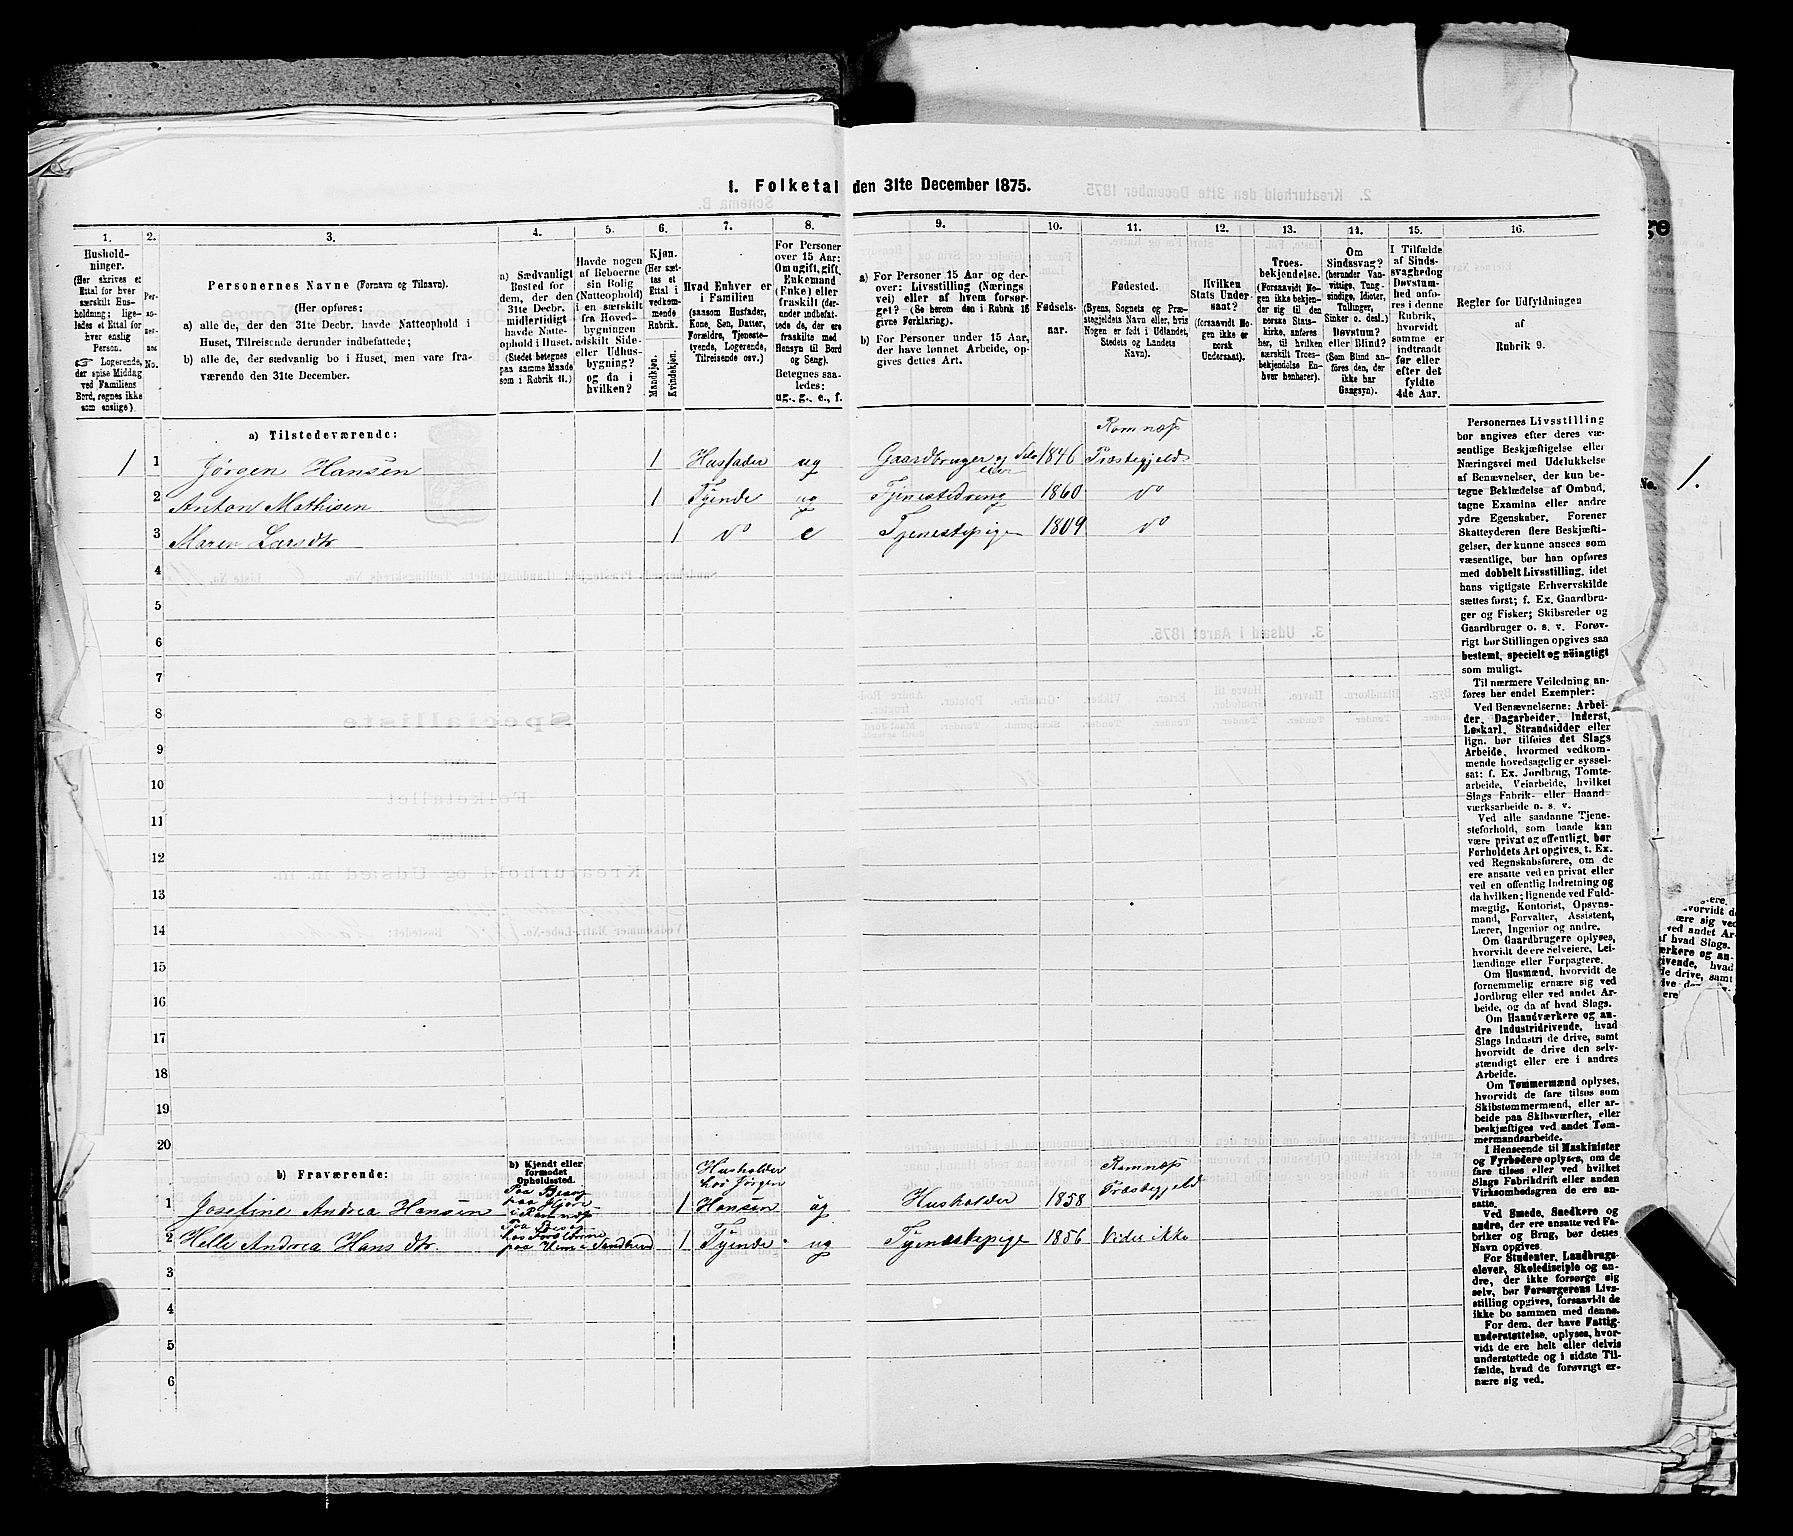 1. Folketal den 31te December 1875.
1.
Hushold-
ninger.
(Her skrives et
Ettal for hver
særskilt Hus-
holdning; lige-
ledes et Ettal for
hver enslig
Person.
☞ Logerende,
der spise Middag
ved Familiens
Bord, regnes ikke
som enslige).
2.
No.
3.
Personernes Navne (Fornavn og Tilnavn).
(Her opføres:
a) alle de, der den 31te Decbr. havde Natteophold i
Huset, Tilreisende derunder indbefattede;
b) alle de, der sædvanlig bo i Huset, men vare fra-
værende den 31te December.
4.
a) Sædvanligt
Bosted for
dem, der den
31te Decbr.
midlertidigt
havde Natte-
ophold i Huset.
(Stedet betegnes
paa samme Maade
som i Rubrik 11.)
5.
Havde nogen
af Beboerne
sin Bolig
(Natteophold)
i en særskilt
fra Hoved-
bygningen
adskilt Side-
eller Udhus-
bygning?
og da i
hvilken?
6.
Kjøn.
(Her sæt-
tes et
Ettal i
vedkom-
mende
Rubrik.
Mandkjøn.
Kvindekjøn.
7.
Hvad Enhver er
i Familien
(saasom Husfader,
Kone, Søn, Datter,
Forældre, Tjeneste-
tyende, Logerende,
Tilreisende osv.)
8.
For Personer
over 15 Aar:
Om ugift, gift,
Enkemand
(Enke) eller
fraskilt (der-
under indbefat-
tede de, der ere
fraskilte med
Hensyn til Bord
og Seng).
Betegnes saa-
ledes:
ug., g., e., f.
9.
a) For Personer 15 Aar og der-
over: Livsstilling (Nærings
vei) eller af hvem forsør-
get? (Se herom den i Rubrik 16
givne Forklaring).
b) For Personer under 15 Aar,
der have lønnet Arbeide, op-
gives dettes Art.
10.
Fødsels-
aar.
11.
Fødested.
(Byens, Sognets og Præ-
stegjeldets Navn eller, hvis
Nogen er født i Udlandet,
Stedets og Landets
Navn).
12.
Hvilken
Stats Under-
saat?
(forsaavidt No-
gen ikke er
norsk
Undersaat).
13.
Troes-
bekjendelse.
(Forsaavidt No-
gen ikke bekjen-
der sig til den
norske Stats-
kirke, anføres
her, til hvilken
særskilt Troes-
bekjendelse En-
hver henhører).
14.
Om
Sindssvag?
(herunder Van-
vittige, Tung-
sindige, Idioter,
Tullinger,
Sinker o. desl.)
Døvstum?
eller Blind?
(Som Blind an-
føres den, der
ikke har
Gangsyn).
15.
I Tilfælde
af Sinds-
svaghed og
Døvstum-
hed anfø-
res i denne
Rubrik,
hvorvidt
samme er
indtraadt
før eller
efter det
fyldte
4de Aar.
16.
Regler for Udfyldningen
af
Rubrik 9.
a) Tilstedeværende:
Romnæs
1 1 Jørgen Hansen 1 Husfader ug Gaardbruger og Selv- 1846 Præstegjeld
eier
2 Anton Mathisen 1 Tyende ug Tjenestedreng 1860 do
3 Maren Larsdtr 1 do e Tjenestepige 1809 do
4
5
6
7
8
9
10
11
12
13
14
15
16
17
18
19
20
b) Fraværende:
b) Kjendt eller
formodet
Opholdssted.
Husholder Romnæs
hos Jørgen
1 Josefine Andrea Hansen Paa Besøg paa i Romnæs 1 Hansen ug Husholder 1858 Præstegjeld
2 Helle Andrea Hansdtr. Paa Besøg hos Forældrene paa i Sandherred 1 Tyende ug Tjenestepige 1856 Vides ikke
3
4
5
6
Personernes Livsstilling
bør angives efter deres væ-
sentlige Beskjæftigelse eller
Næringsvei med Udelukkelse
af Benævnelser, der kun be-
tegne Beklædelse af Ombud,
tagne Examina eller andre
ydre Egenskaber. Forener
Skatteyderen flere Beskjæfti-
gelser, der kunne ansees som
væsentlige, bør han opføres
med dobbelt Livsstilling, idet
hans vigtigste Erhvervskilde
sættes først; f. Ex. Gaardbru-
ger og Fisker; Skibsreder og
Gaardbruger o. s. v. Forøv-
rigt bør Stillingen opgives saa
bestemt, specielt og nöiagtigt
som muligt.
Til nærmere Veiledning an-
føres her endel Exempler:
Ved Benævnelserne: Arbei-
der, Dagarbeider, Inderst,
Løskarl, Strandsidder eller
lign. bør tilføies det Slags
Arbeide, hvormed vedkom-
mende hovedsagelig er syssel-
sat; f. Ex. Jordbrug, Tomte-
arbeide, Veiarbeide, hvilket
Slags Fabrik- eller Haand
værksarbeide o. s. v.
Ved alle saadanne Tjene-
steforhold, som baade kan
være privat og offentligt, bør
Forholdets Art opgives, t. Ex.
ved Regnskabsførere, om de
ere ansatte ved en privat eller
ved en offentlig Indretning og
da hvilken; lignende ved Fuld-
mægtig, Kontorist, Opsyns-
mand, Forvalter, Assistent,
Lærer, Ingeniør og andre.
Om Gaardbrugere oplyses,
hvorvidt de ere Selveiere, Lei-
lændinge eller Forpagtere.
Om Husmænd, hvorvidt de
fornemmelig ernære sig ved
Jordbrug eller ved andet Ar-
beide, og da af hvad Slags.
Om Haandværkere og an-
dre Industridrivende, hvad
Slags Industri de drive, samt
hvorvidt de drive den selv-
stændigt eller ere i andres
Arbeide.
Om Tømmermænd oplyses,
hvorvidt de fare tilsøs som
Skibstømmermænd, eller ar-
beide paa Skibsværfter, eller
beskjæftiges ved andet Tøm-
mermandsarbeide.
I Henseende til Maskinister
og Fyrbødere oplyses, om de
fare tilsøs eller ved hvilket
Slags Fabrikdrift eller anden
Virksomhed de ere an-
satte.
Ved Smede, Snedkere og
andre, der ere ansatte ved Fa-
briker og Brug, bør dettes
Navn opgives.
For Studenter, Landbrugs-
elever, Skoledisciple og an-
dre, der ikke forsørge sig
selv, bør Forsørgerens Livs-
stilling opgives, forsaavidt de
ikke bo sammen med denne.
For dem, der have Fattig-
understøttelse, oplyses, hvor-
vidt de ere helt eller delvis
understøttede og i sidste Til-
fælde, hvad de forøvrigt er-
nære sig ved.
No. 1.